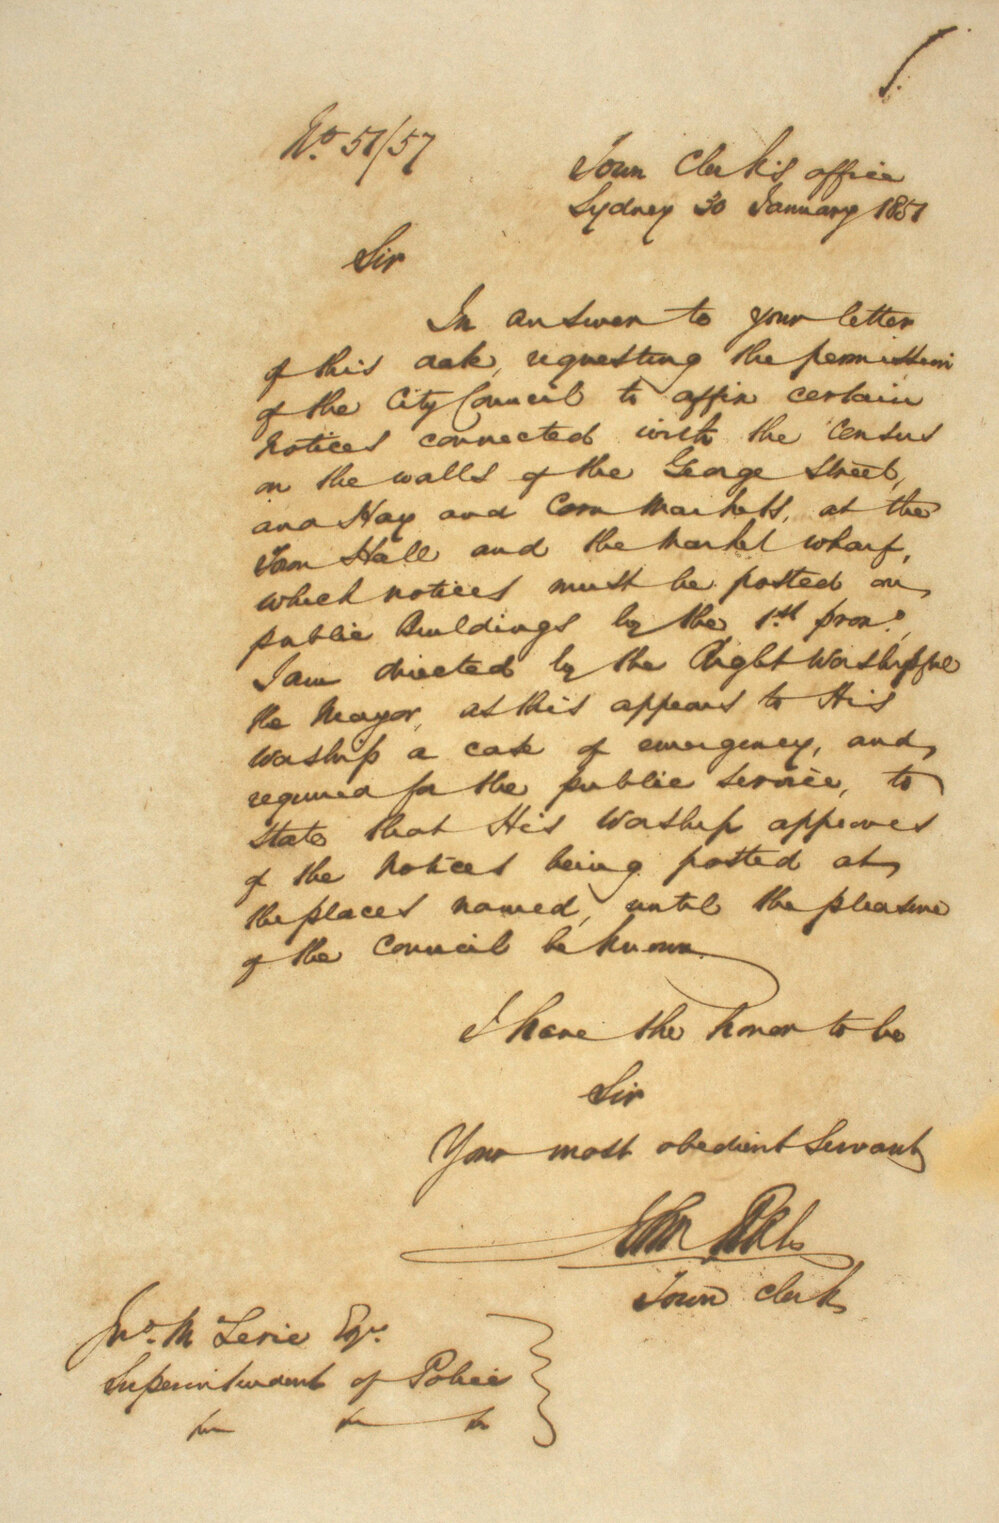 No. 51/57
Town Clerk's office
Sydney 30 January 1851
Sir
In answer to your letter
of this date, requesting the permission
of the City Council to affix certain
notices connected with the Census
on the walls of the George Street,
and Hay and Corn Markets, at the
Town Hall and the Market wharf,
which notices must be posted on
public Buildings by the 1st proxo.,
I am directed by the Right Worshipful
the Mayor, as this appears to His
Worship a case of emergency, and
required for the public service, to
State that His Worship approves
of the notices being posted at
the places named, until the pleasure
of the Council be known.
I have the honor to be
Sir
Your most obedient Servant
John
Town Clerk
Jno. M Lerie Esqr.
Superintendent of Police